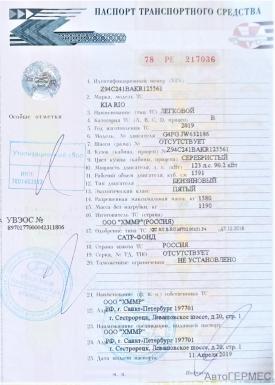 ПАСПОРТ ТРАНСПОРТНОГО СРЕДСТВА
78 РЕ 217036
Особые отметки
1. Идентификационный номер (VIN)
Z94C241BAKR125561
2. Марка, модель ТС
KIA RIO
3. Наименование (тип ТС) ЛЕГКОВОЙ
4. Категория ТС (А, В, С, D, прицеп) B
5. Год изготовления ТС 2019
6. Модель, № двигателя G4FG JW632186
7. Шасси (рама) № ОТСУТСТВУЕТ
8. Кузов (кабина, прицеп) № Z94C241BAKR125561
9. Цвет кузова (кабины, прицепа) СЕРЕБРИСТЫЙ
10. Мощность двигателя, л. с. (кВт) 123 л.с. 90.2 кВт
11. Рабочий объем двигателя, куб. см 1591
12. Тип двигателя БЕНЗИНОВЫЙ
13. Экологический класс ПЯТЫЙ
14. Разрешенная максимальная масса, кг 1580
15. Масса без нагрузки, кг 1190
16. Изготовитель ТС (страна)
ООО "ХММР"(РОССИЯ)
17. Одобрение типа ТС №
САТР-ФОНД
18. Страна вывоза ТС РОССИЯ
19. Серия, № ТД, ТПО ОТСУТСТВУЕТ
20. Таможенные ограничения НЕ УСТАНОВЛЕНО
Утилизационный сбор
УВЭОС №
21. Наименование (ф. и. о.) собственника ТС
ООО "ХММР"
22. Адрес РФ, г. Санкт-Петербург 197701
г. Сестрорецк, Левашовское шоссе, д.20, стр. 1
23. Наименование организации, выдавшей паспорт
ООО "ХММР"
24. Адрес РФ, г. Санкт-Петербург 197701
г. Сестрорецк, Левашовское шоссе, д.20, стр. 1
25. Дата выдачи паспорта 11 Апреля 2019
М. П.
Подпись
АвтоГЕРМЕС